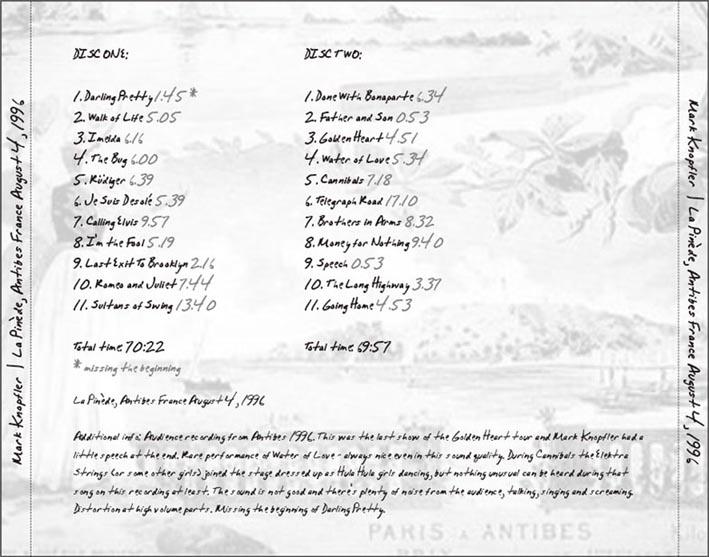 Mark Knopfler | La Pinède, Antibes France August 4, 1996
DISC ONE:
1. Darling Pretty 1.45 *
2. Walk of Life 5.05
3. Imelda 6.16
4. The Bug 6.00
5. Rüdiger 6.39
6. Je Suis Desolé 5.39
7. Calling Elvis 9.57
8. I'm the Fool 5.19
9. Last Exit To Brooklyn 2.16
10. Romeo and Juliet 7.44
11. Sultans of Swing 13.40
Total time 70:22
* missing the beginning
DISC TWO:
1. Done With Bonaparte 6.34
2. Father and Son 0.53
3. Golden Heart 4.51
4. Water of Love 5.34
5. Cannibals 7.18
6. Telegraph Road 17.10
7. Brothers in Arms 8.32
8. Money for Nothing 9.40
9. Speech 0.53
10. The Long Highway 3.37
11. Going Home 4.53
Total time 69:57
La Pinède, Antibes France August 4, 1996
Additional info: Audience recording from Antibes 1996. This was the last show of the Golden Heart tour and Mark Knopfler had a
little speech at the end. Rare performance of Water of Love - always nice even in this sound quality. During Cannibals the Elektra
Strings (or some other girls) joined the stage dressed up as Hula Hula girls dancing, but nothing unusual can be heard during that
song on this recording at least. The sound is not good and there's plenty of noise from the audience, talking, singing and screaming.
Distortion at high volume parts. Missing the beginning of Darling Pretty.
PARIS À ANTIBES
Mark Knopfler | La Pinède, Antibes France August 4, 1996